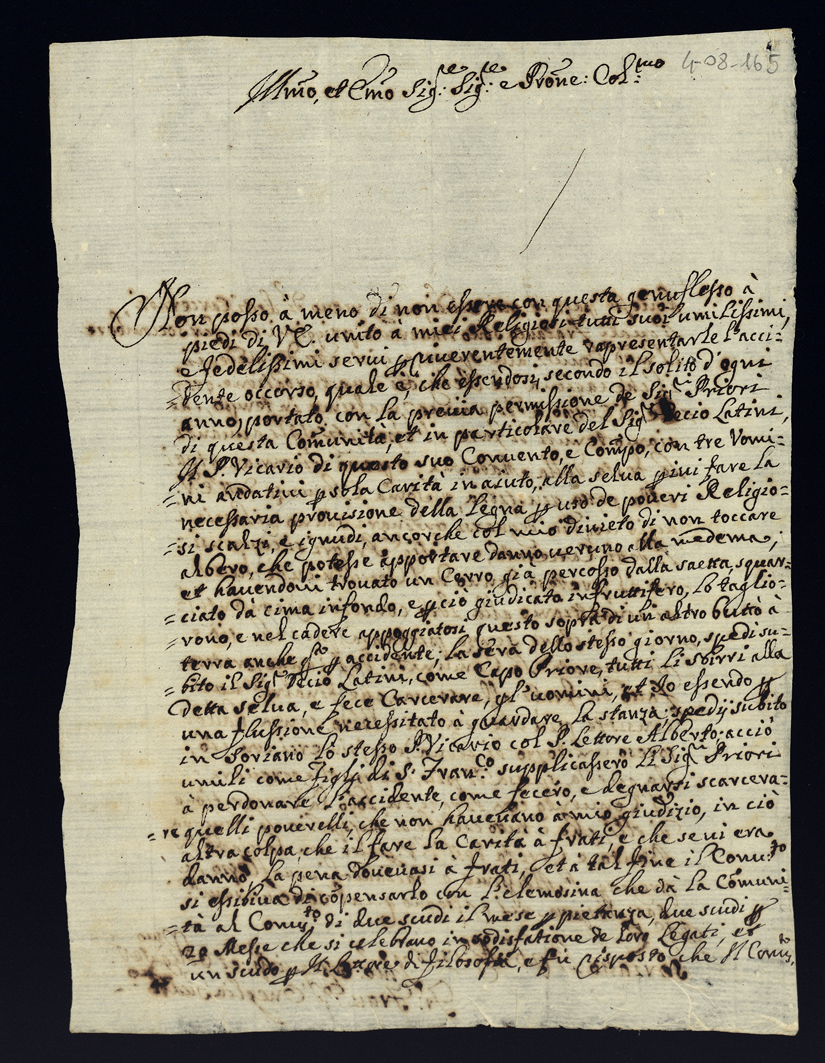 4-08-165
Illmo, et Emo Sig:re Sig:re e Prone: Col:mo
Non posso à meno di non essere con questa genuflesso à
piedi di VE. unito à miei Religiosi tutti suoi umilissimi,
e fedelissimi servi p riverentemente rapresentarle l'acci-
=dente occorso, quale è, che essendosi secondo il solito d'ogni
anno portato, con la previa permissione de Sig:ri Priori
di questa Comunità, et in particolare del Sig:r Decio Latini,
Il P. Vicario di questo suo Convento, e Compo, con tre Vomi-
=ni andativi p sola Carità in aiuto, alla selva p ivi fare la
necessaria provisione della legna p uso de poveri Religio=
=si scalzi, e ignudi, ancorche col mio divieto di non toccare
albero, che potesse apportare danno veruno alla medema,
et havendovi trovato un Cerro, già percosso dalla saetta, squar-
=ciato da cima infondo, e p ciò giudicato infruttifero, lo taglio-
=rono, e nel cadere appoggiatosi questo sopra di un altro buttò à
terra anche qto p accidente; la sera dello stesso giorno, spedì su-
=bito il Sig:r Decio Latini, come Capo Priore, tutti li sbirri alla
detta selva, e fece Carcerare, gl'uomini, et Io essendo p
una flussione necessitato à guardare la stanza; spedij subito
in Soriano lo stesso P. Vicario col P. Lettore Alberto acciò
umili come figlj di S. Fran:co supplicassero li Sig:ri Priori
à perdonare l'accidente, come fecero, e degnarsi scarcera-
=re quelli poverelli, che non havevano à mio giudizio, in ciò
altra colpa, che il fare la Carità à frati, e che se vi era
danno la pena dovevasi à frati, et à tal fine il Conv:to
si essibiva di copensarlo con l'elemosina che dà la Comuni-
=tà al Conv:to di due scudi il mese p pietanza, due scudi p
20 Messe che si celebrano in sodisfatione de loro Legati, et
un scudo p Il Lettore di filosofia, e fù risposto che Il Conv:to